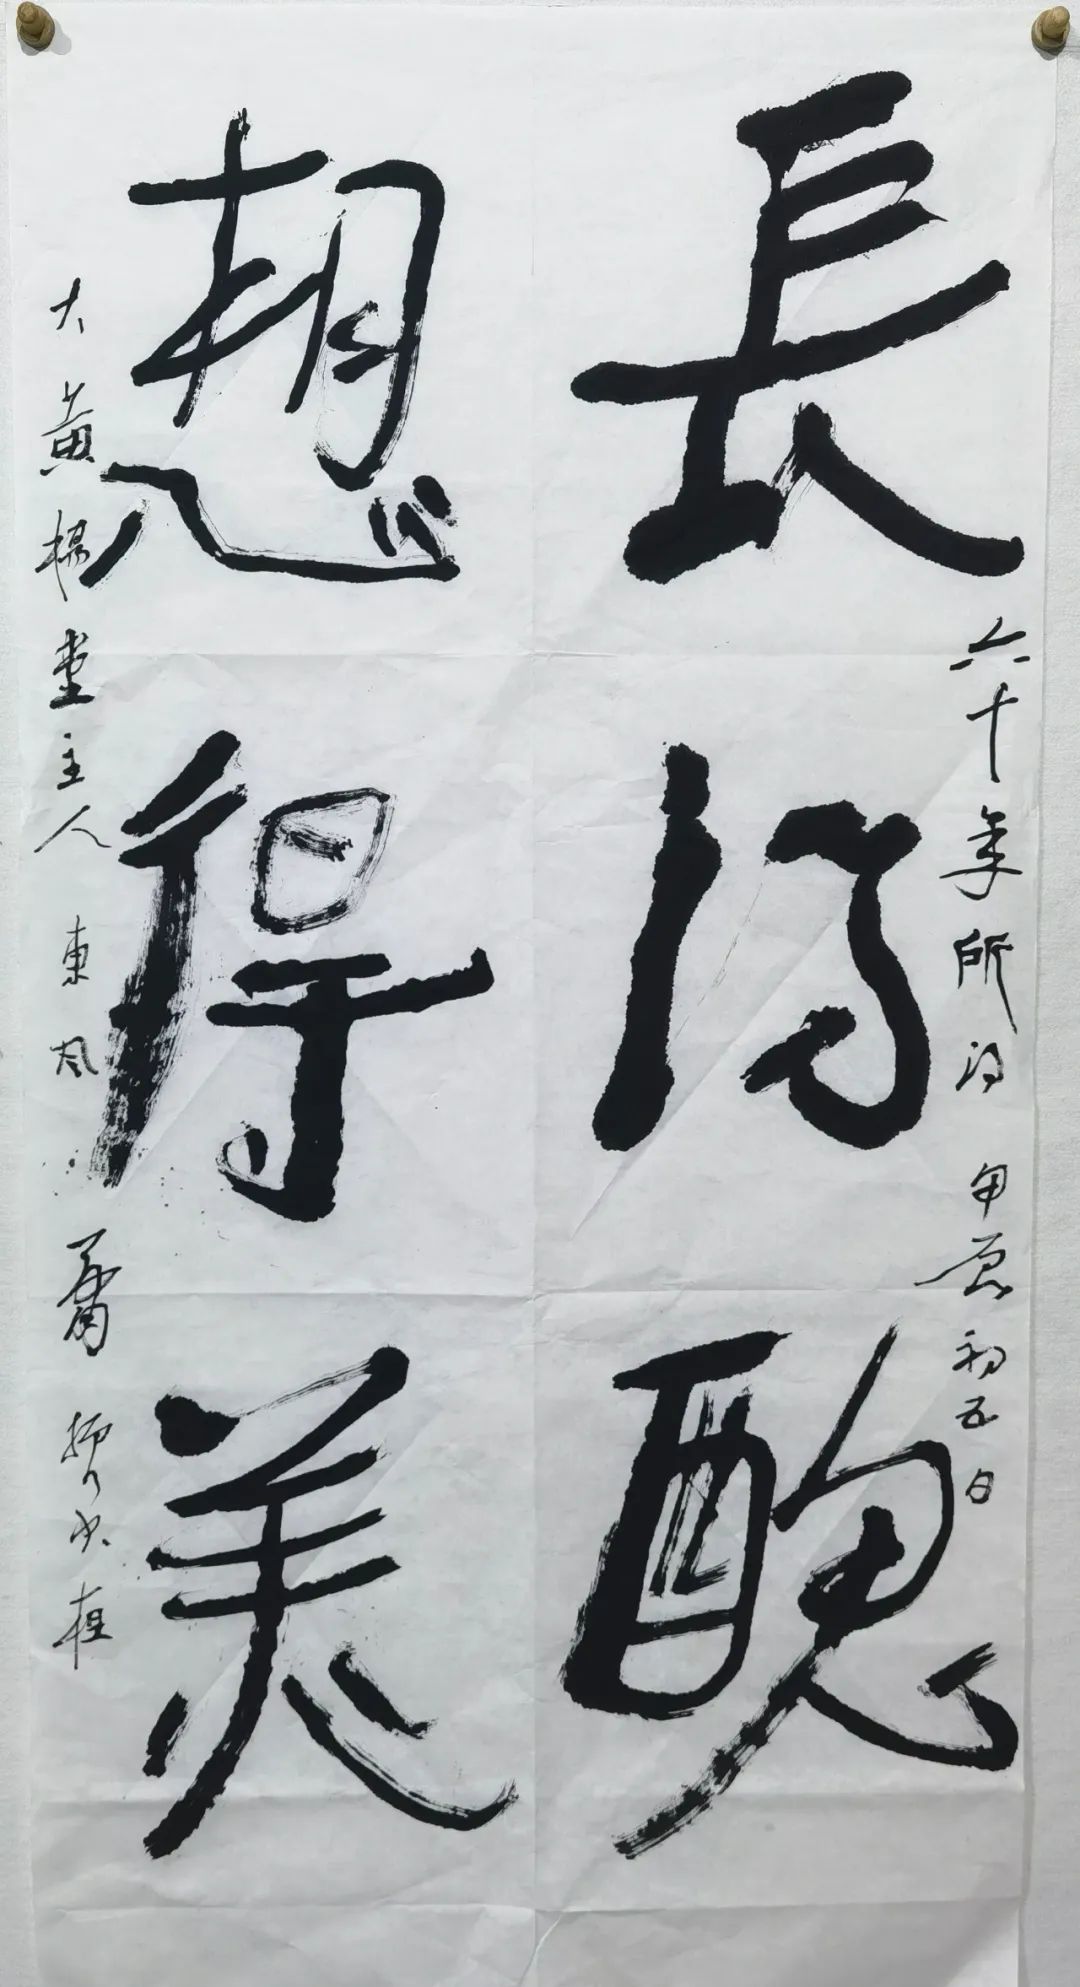 長得醜
六十年所得 甲辰初五日
想得美
大黃楊堂主人 東風 書